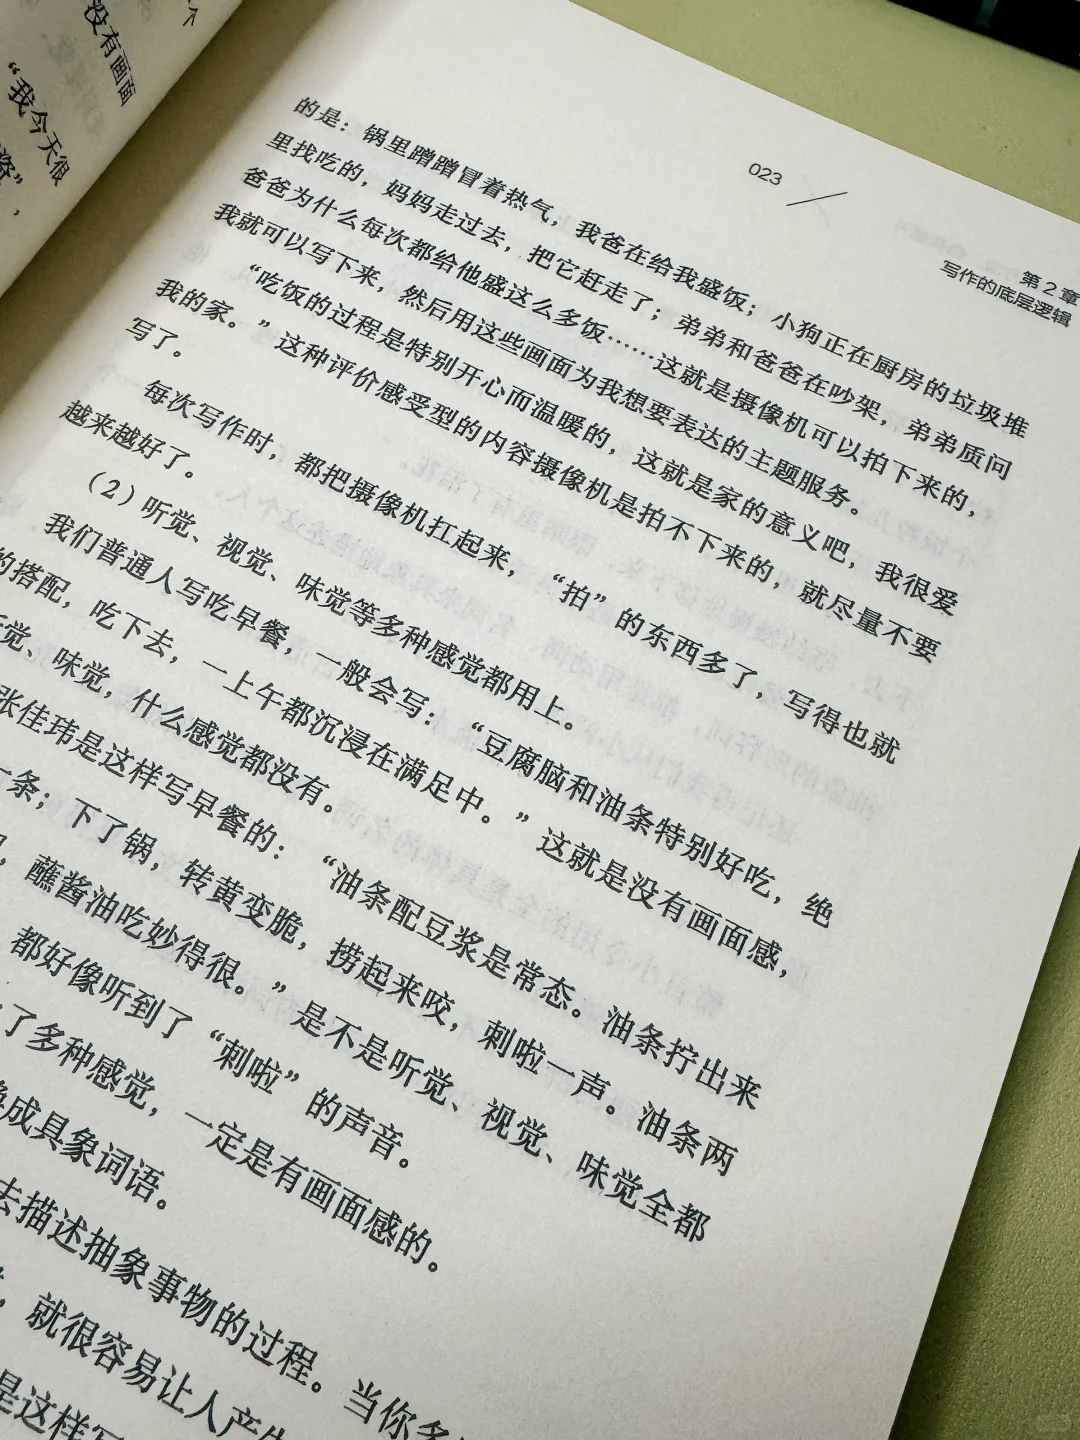 个
没有画面
“我今天很
资”，
023
第2章
写作的底层逻辑
的是：锅里蹭蹭冒着热气，我爸在给我盛饭；小狗正在厨房的垃圾堆
里找吃的，妈妈走过去，把它赶走了；弟弟和爸爸在吵架，弟弟质问
爸爸为什么每次都给他盛这么多饭……这就是摄像机可以拍下来的，
我就可以写下来，然后用这些画面为我想要表达的主题服务。
“吃饭的过程是特别开心而温暖的，这就是家的意义吧，我很爱
我的家。”这种评价感受型的内容摄像机是拍不下来的，就尽量不要
写了。
每次写作时，都把摄像机扛起来，“拍”的东西多了，写得也就
越来越好了。
（2）听觉、视觉、味觉等多种感觉都用上。
我们普通人写吃早餐，一般会写：“豆腐脑和油条特别好吃，绝
的搭配，吃下去，一上午都沉浸在满足中。”这就是没有画面感，
觉、味觉，什么感觉都没有。
张佳玮是这样写早餐的：“油条配豆浆是常态。油条拧出来
一条；下了锅，转黄变脆，捞起来咬，刺啦一声。油条两
，蘸酱油吃妙得很。”是不是听觉、视觉、味觉全都
都好像听到了“刺啦”的声音。
了多种感觉，一定是有画面感的。
成具象词语。
去描述抽象事物的过程。当你
，就很容易让人产生
是这样写